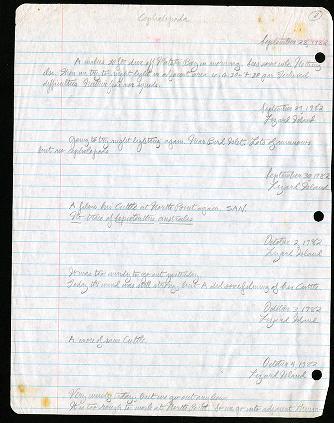 Cephalopoda
September 28, 1982
A makes 20 ft. dive off Watsons Bay in morning. Sees some
else. Then we try to night light in adjacent area
difficulties. Neither fish nor squids.
September 29, 1982
Lizard Island
Going to try night lighting again. Near Bird Islet. Lots of
but no cephalopods
September 30, 1982
Lizard Island
A films her Cuttle at North Point again. SAN.
We take of Sepioteuthis australis
October 2, 1982
Lizard Island
It was too windy to go out yesterday.
Today the wind was still strong, but A did some filming of her Cuttle
October 3, 1982
Lizard Island
A more of same Cuttle.
October 4, 1982
Lizard Island
Very windy today. But we go out anyhow.
It is too rough to work at North Point. So we go into adjacent